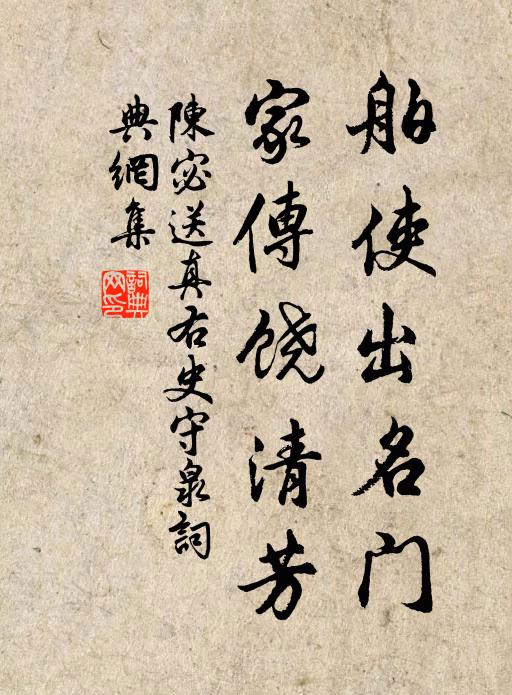 舶使出名门
家傳饶清芳
陳宓送真右史守泉詞
典網集
詞典网印